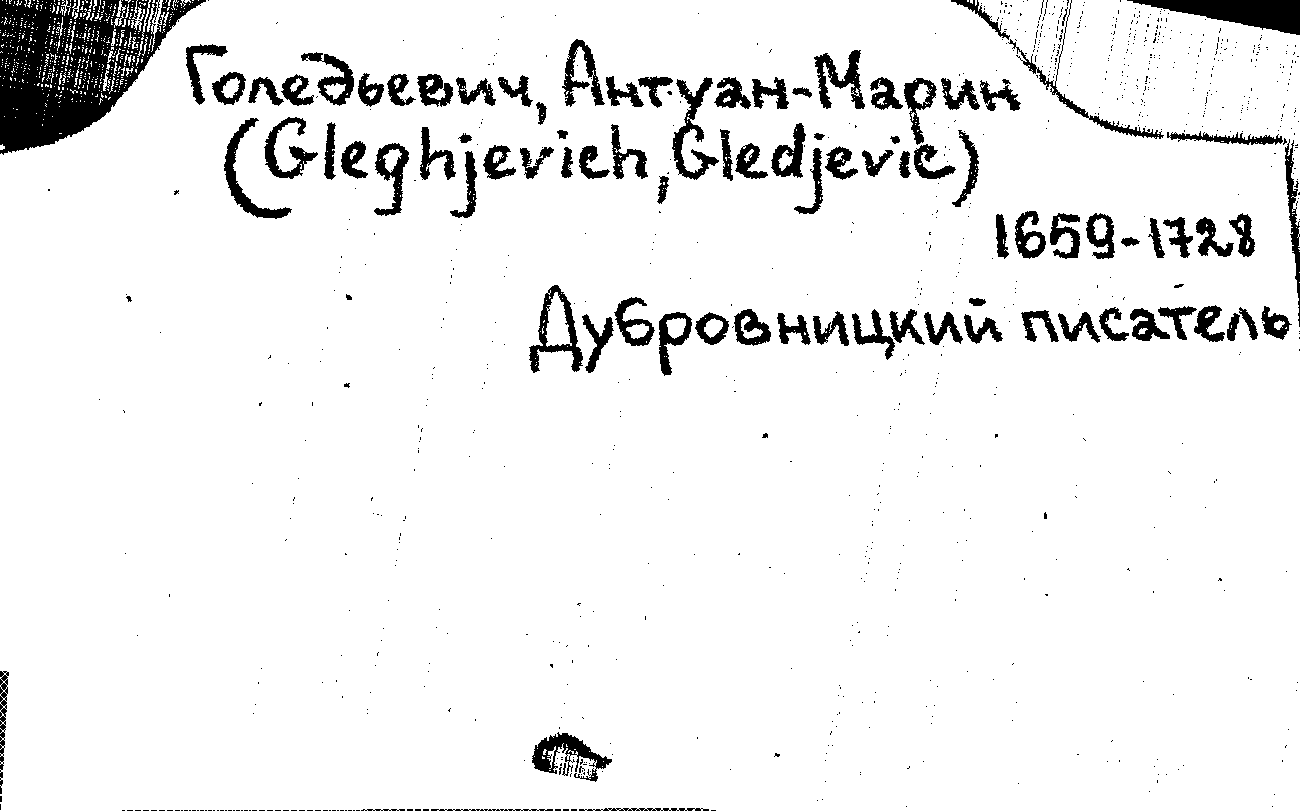 Голедьевич, Антуан-Марин
(Gleghjevich, Gledjevic)
1659-1728
Дубровницкий писатель